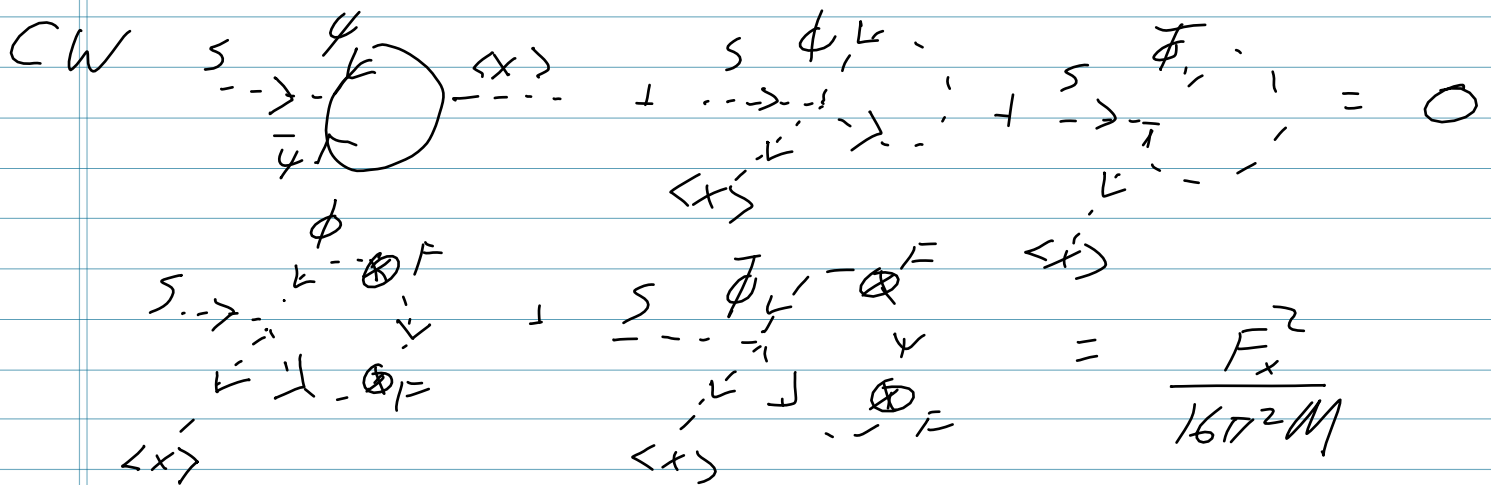 CW S ψ ψ̄ <x> + S φ <x> + S φ̄ <x> = 0
S φ F F <x> + S φ̄ F F <x> = F_x^2 / 16π^2 M